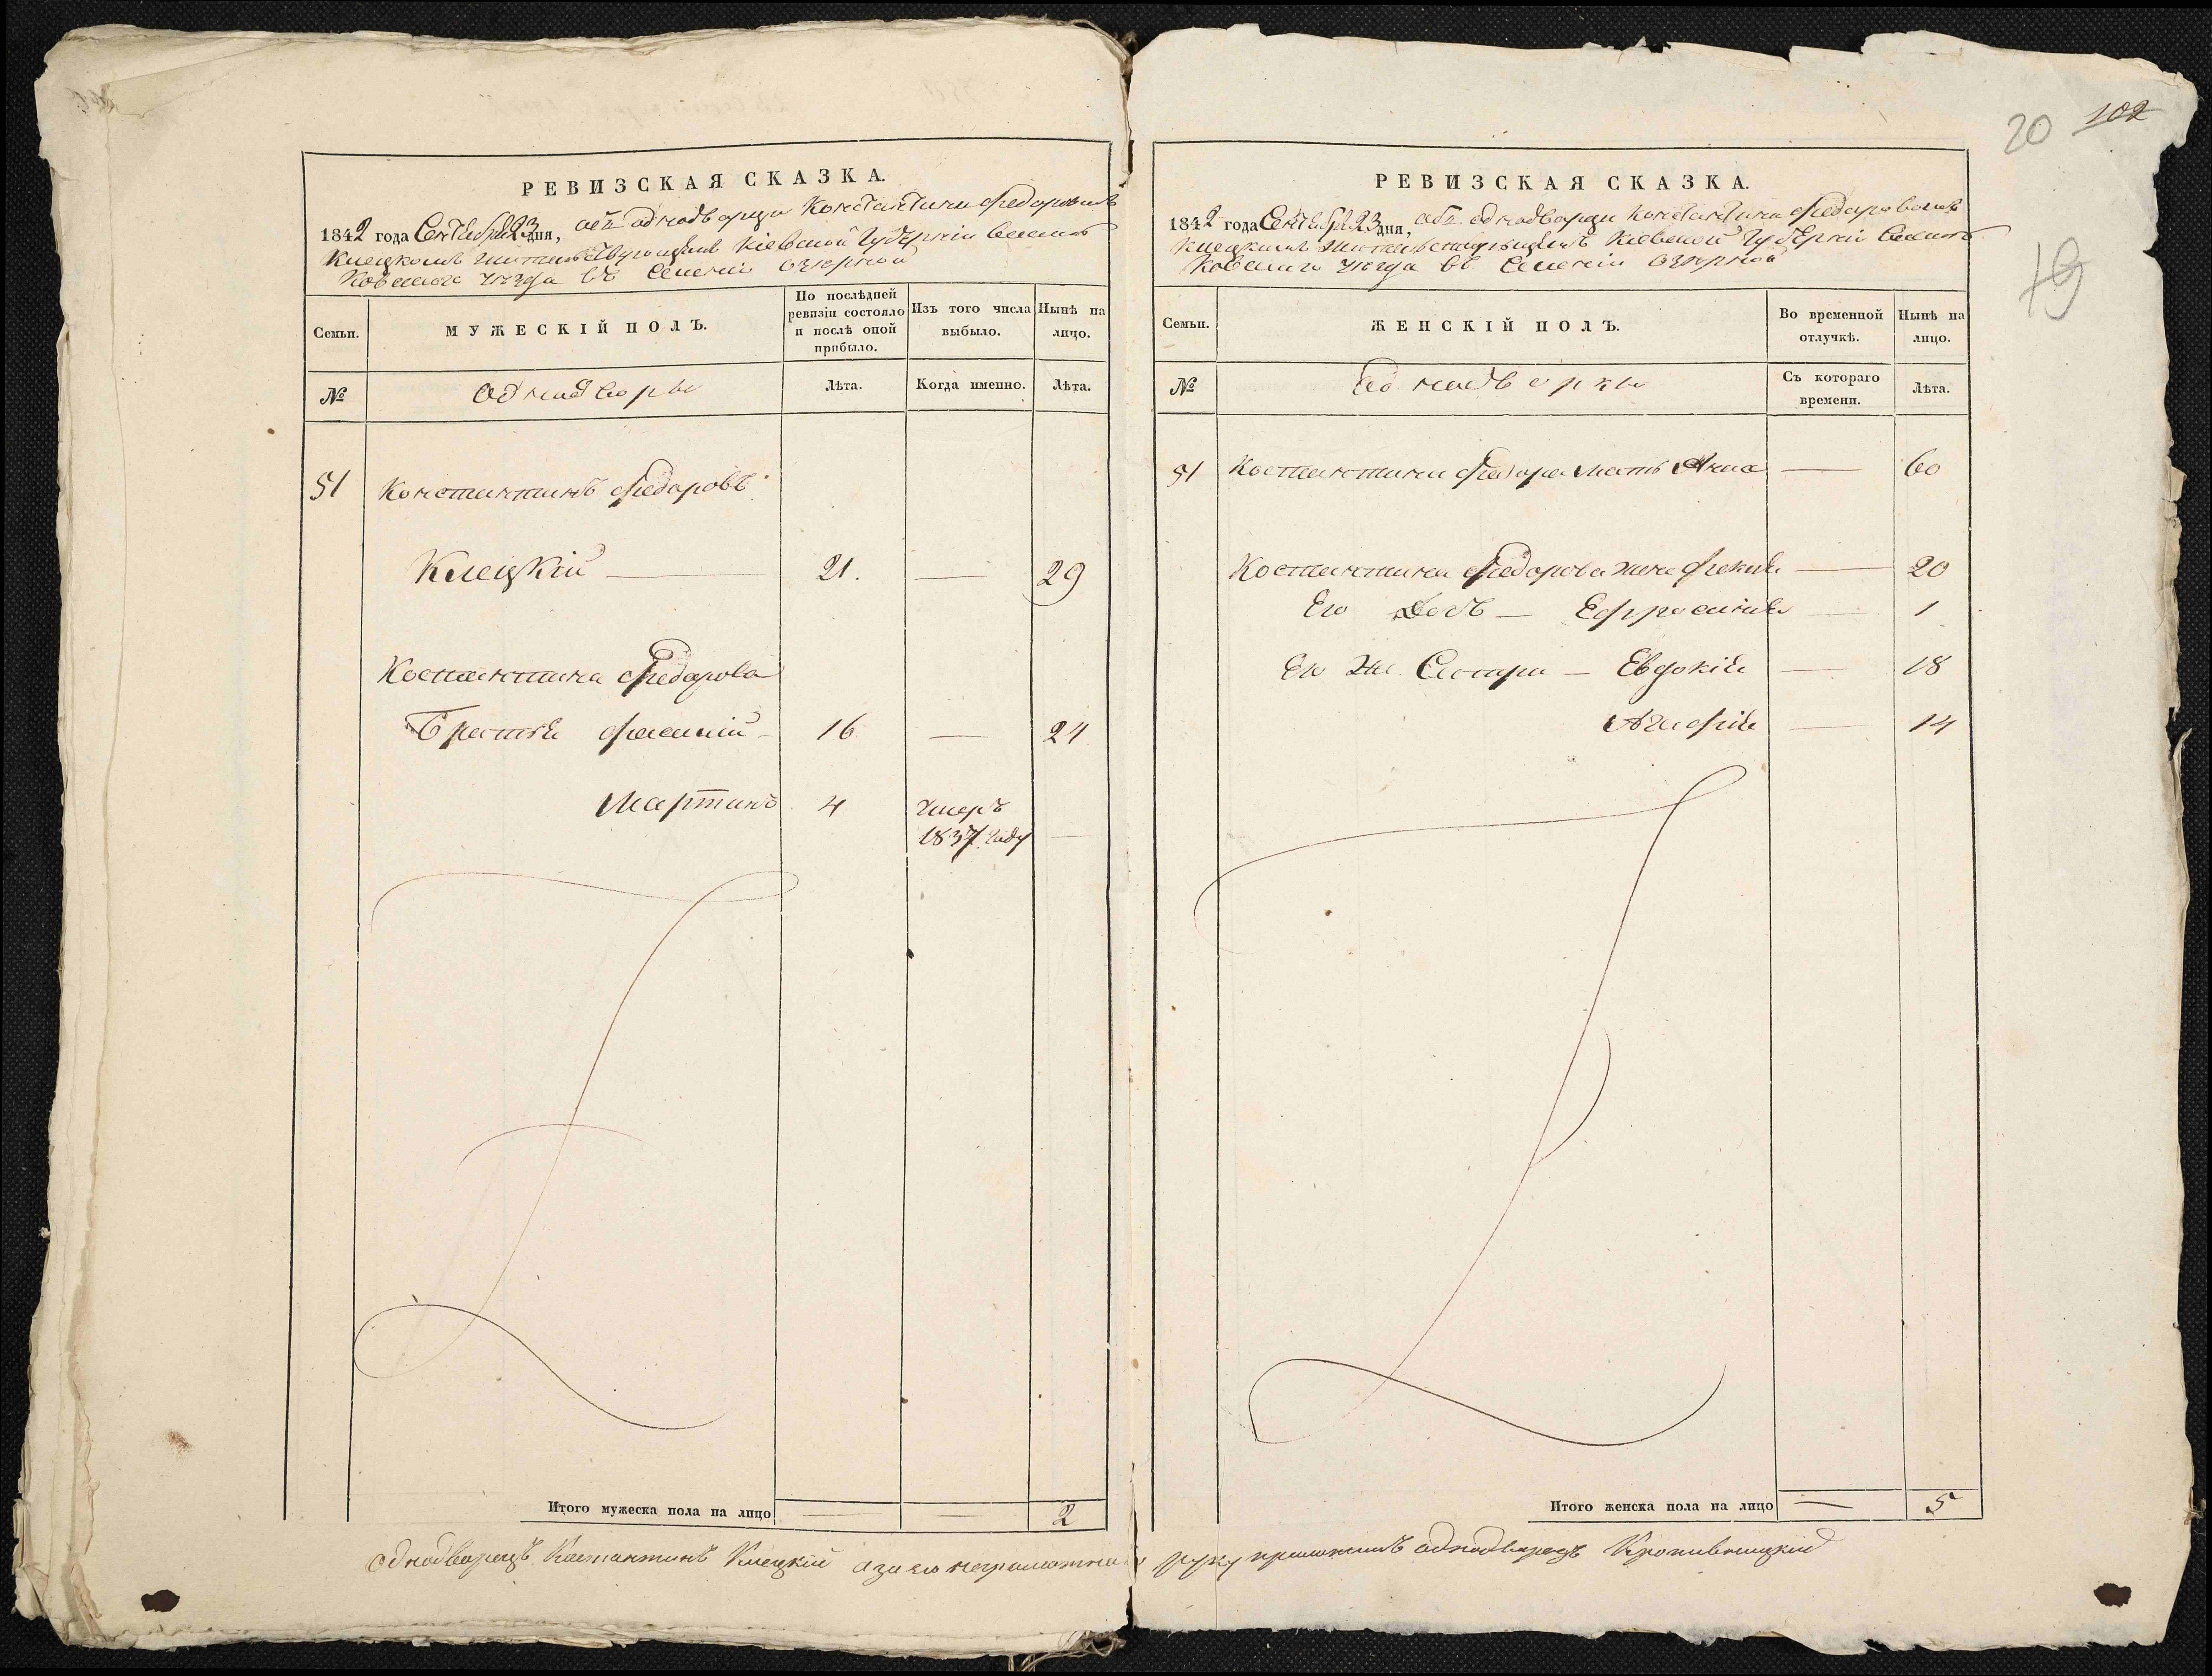 РЕВИЗСКАЯ СКАЗКА.
1842 года Сентября 23 дня, объ однодворци Константини Федоровомъ
Клецкомъ жительствующемъ Кіевской Губерніи Сквит
ковскаго уезда въ Селеніи Озерной
Семьи.
МУЖЕСКІЙ ПОЛЪ.
По послѣдней
ревизіи состояло
и послѣ оной
прибыло.
Изъ того числа
выбыло.
Нынѣ на
лицо.
№
Однодворы
Лѣта.
Когда именно.
Лѣта.
51 Константинъ Федоровъ
Клецкій — 21. — 29
Костантина Федорова
Братья 16 — 24
Мартинъ 4 умеръ
1837 году —
Итого мужеска пола на лицо — — 2
однодворецъ Костантинъ Клецкій а за его неграмотна
20 102
19
РЕВИЗСКАЯ СКАЗКА.
1842 года Сентября 23 дня, объ однодворци Константини Федоровомъ
Клецкомъ жительствующемъ Кіевской Губерніи
ковскаго уезда въ Селеніи Озерной
Семьи.
ЖЕНСКІЙ ПОЛЪ.
Во временной
отлучкѣ.
Нынѣ на
лицо.
№
Однодворки
Съ котораго
времени.
Лѣта.
51 Костантина Федора мать Анна — 60
Костантина Федорова жена — 20
Его Дочь — Ефросинія — 1
Его Же Сестри — Евдокія — 18
— 14
Итого женска пола на лицо — 5
руку приложилъ однодворецъ Кропивницкій